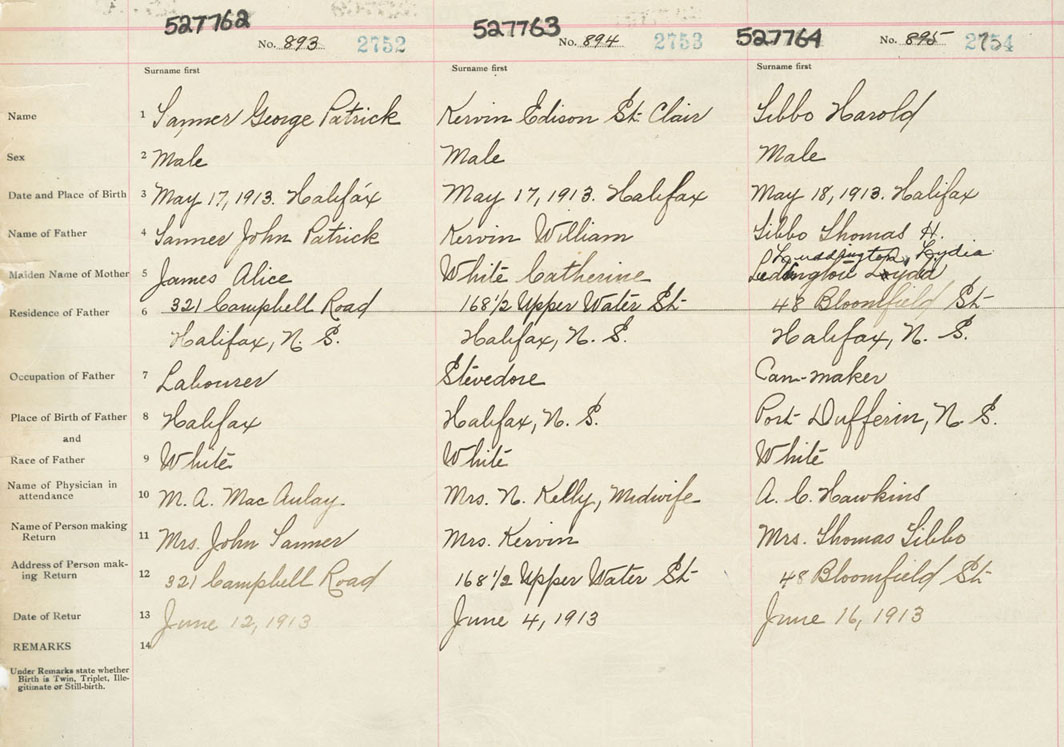 527762 527763 527764
No. 893 2752 No. 894 2753 No. 895 2754
Surname first Surname first Surname first
Name 1 Tanner George Patrick Kervin Edison St. Clair Gibbo Harold
Sex 2 Male Male Male
Date and Place of Birth 3 May 17, 1913. Halifax May 17, 1913. Halifax May 18, 1913. Halifax
Name of Father 4 Tanner John Patrick Kervin William Gibbo Thomas H.
Luddington, Lydia
Maiden Name of Mother 5 James Alice White Catherine Lydia
Residence of Father 6 321 Campbell Road 168 1/2 Upper Water St. 48 Bloomfield St.
Halifax, N. S. Halifax, N. S. Halifax, N. S.
Occupation of Father 7 Labourer Stevedore Can-maker
Place of Birth of Father 8 Halifax Halifax, N. S. Port Dufferin, N. S.
and
Race of Father 9 White White White
Name of Physician in
attendance 10 M. A. MacAulay Mrs. N. Kelly, Midwife A. C. Hawkins
Name of Person making
Return 11 Mrs. John Tanner Mrs. Kervin Mrs. Thomas Gibbo
Address of Person mak-
ing Return 12 321 Campbell Road 168 1/2 Upper Water St. 48 Bloomfield St.
Date of Retur 13 June 12, 1913 June 4, 1913 June 16, 1913
REMARKS 14
Under Remarks state whether
Birth is Twin, Triplet, Ille-
gitimate or Still-birth.